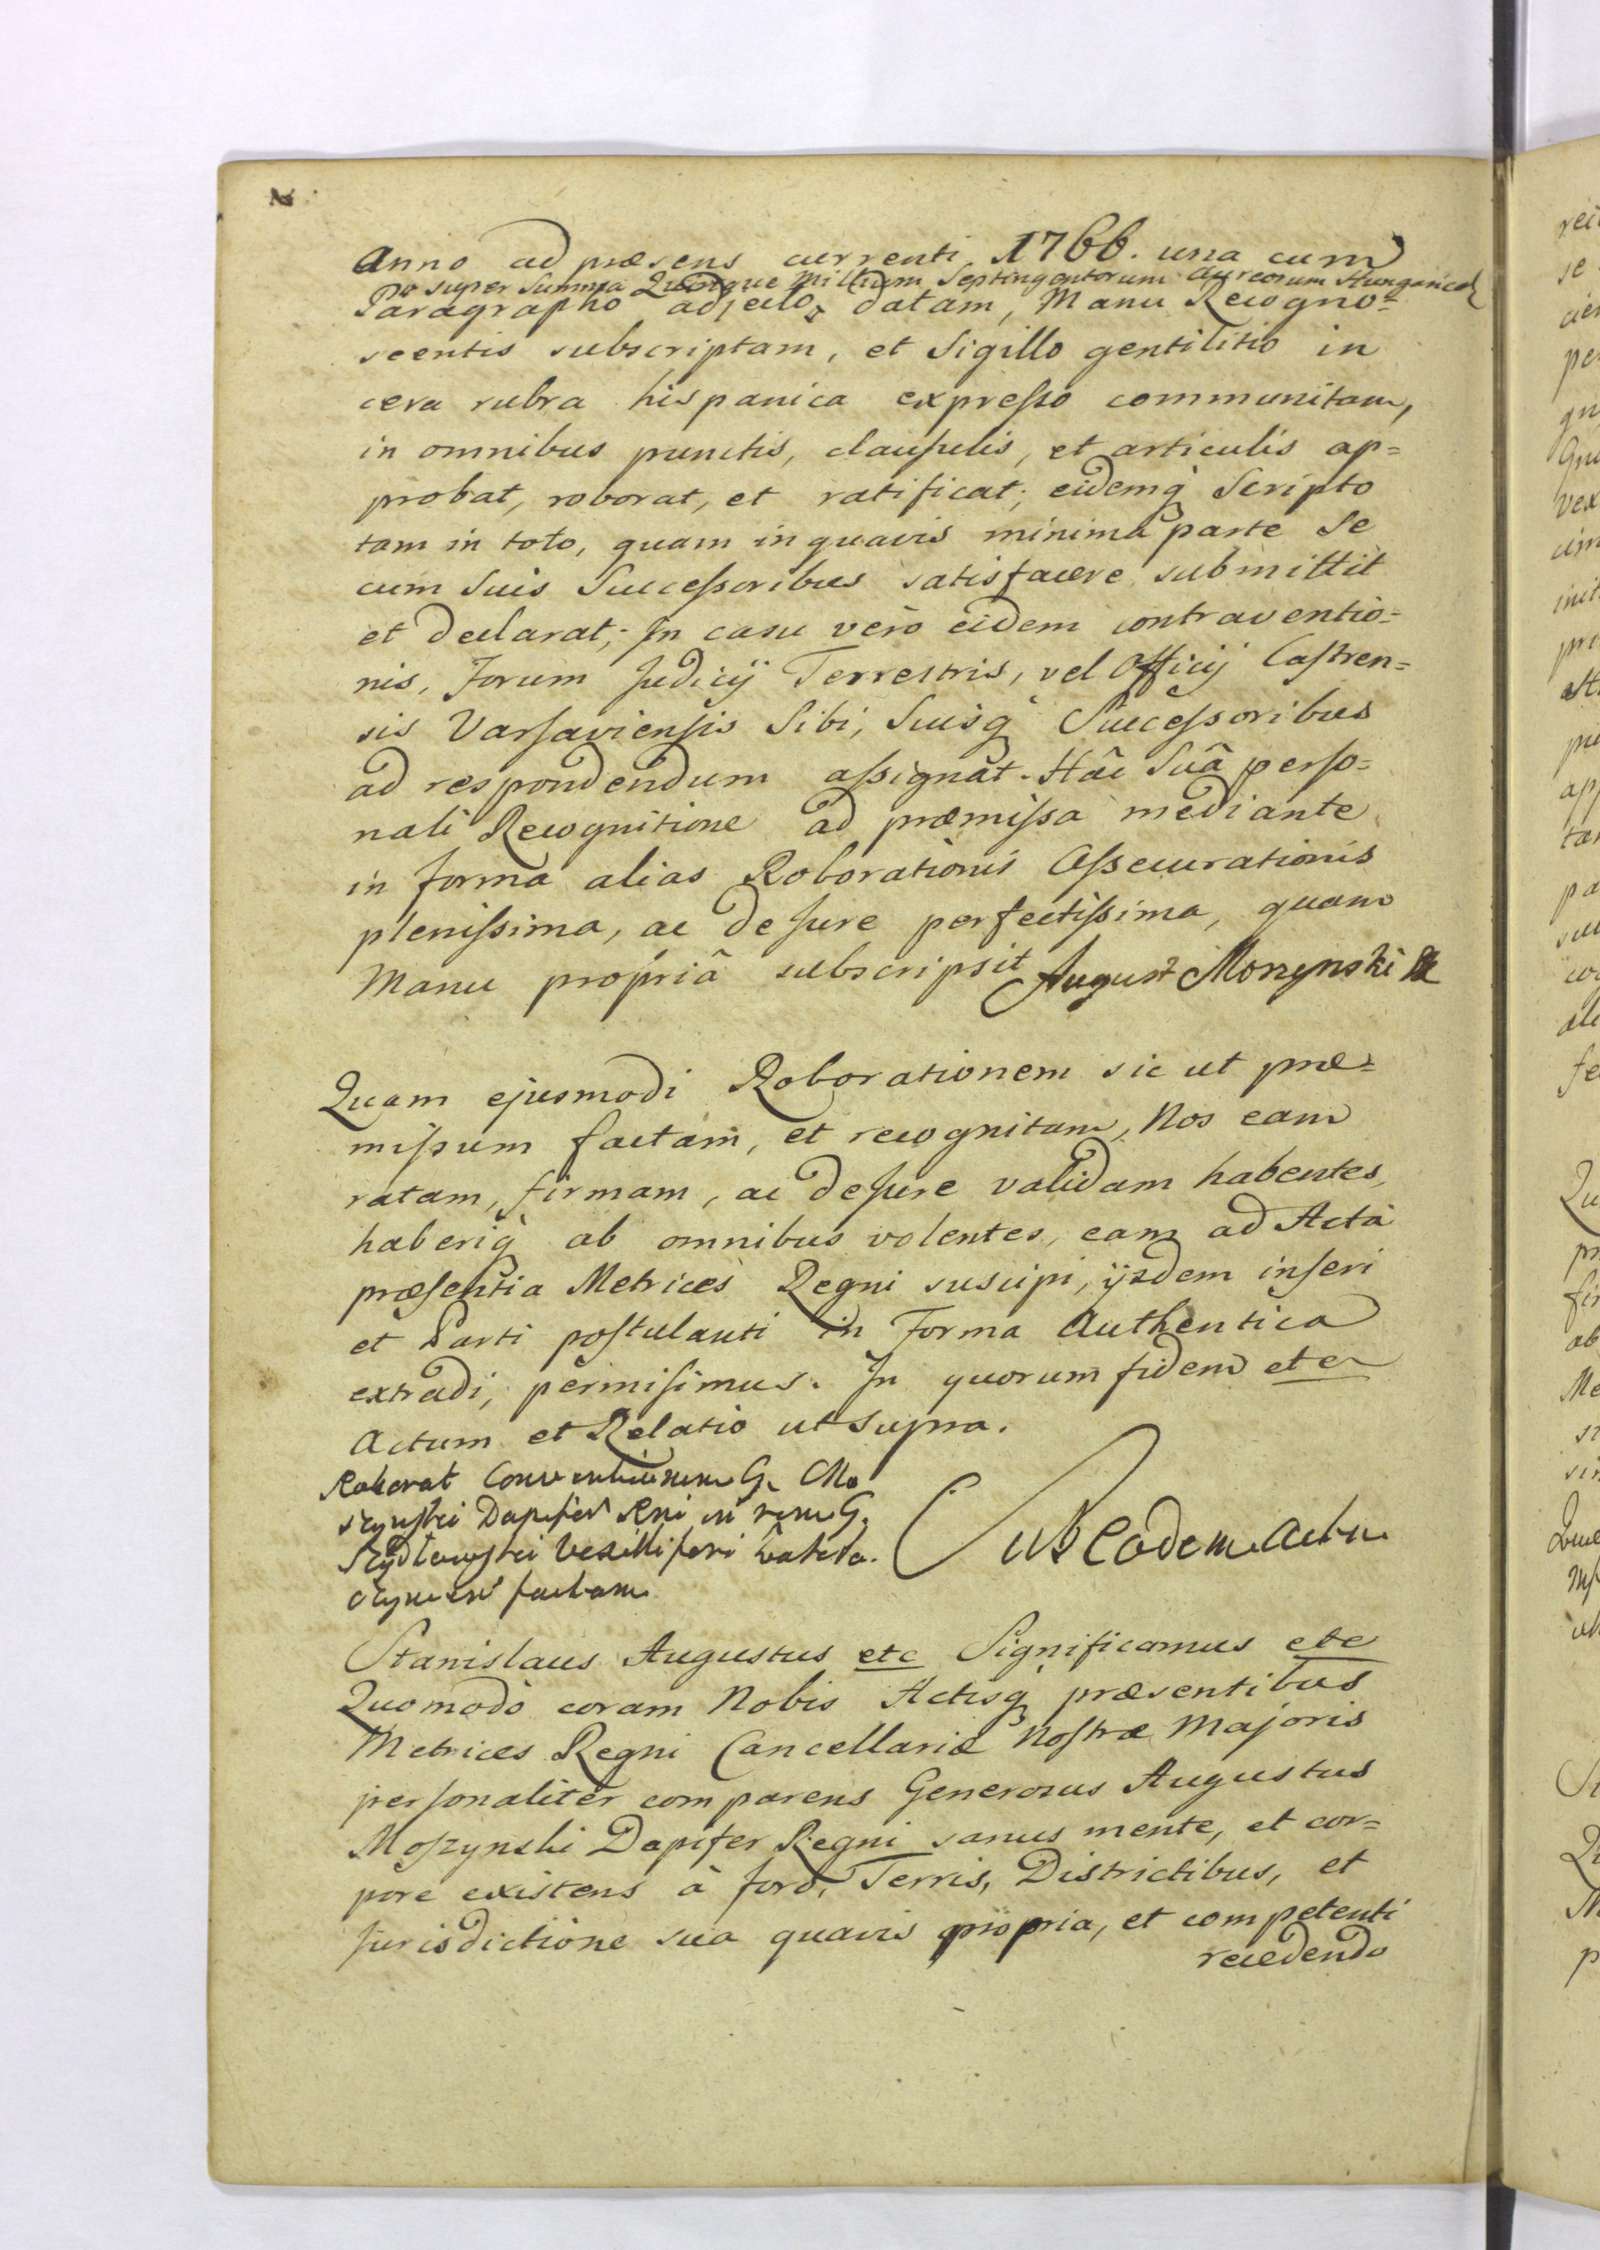 Anno ad præsens currenti 1766. una cum
super Summa Quinque Millium Septingentorum Aureorum Hungarical
Paragrapho adjecto datam, Manu Recogno=
scentis subscriptam, et Sigillo gentilitio in
cera rubra hispanica expreſso communitam,
in omnibus punctis, clauſulis, et articulis ap=
probat, roborat, et ratificat; eidemq̀ Scripto
tam in toto, quam in quavis minima parte Se
cum Suis Succeſsoribus satisfacere submittit
et declarat; In casu verò eidem contraventio=
nis, Forum Judicij Terrestris, vel Officij Caſtren=
sis Varſavienſis Sibi, Suisq̀ Succeſsoribus
ad respondendum aſsignat. Hâc Suâ perſo=
nali Recognitione ad præmiſsa mediante
in forma alias Roborationis Aſsecurationis
pleniſsima, ac de Jure perfectiſsima, quam
Manu propriâ subscripsit August Moszynski
Quam ejusmodi Roborationem sic ut præ=
miſsum factam, et recognitam, Nos eam
ratam, firmam, ac de Jure validam habentes,
haberiq̀ ab omnibus volentes, eam ad Acta
præſentia Metrices Regni suscipi, ijsdem inſeri
et Parti poſtulanti in Forma Authentica
extradi, permiſimus. In quorum fidem etc
Actum et Relatio ut Supra.
Roborat Conventionem G. Mo
szynſki Dapifer Rni in rem G.
Szydłowſki Vexilliferi
factam
Sub eodem Actu
Stanislaus Augustus etc Significamus etc
Quomodo coram Nobis Actisq̀ præsentibus
Metrices Regni Cancellariæ Noſtræ Majoris
perſonaliter comparens Generosus Augustus
Moſzynski Dapifer Regni sanus mente, et cor=
pore existens à foro, Terris, Districtibus, et
Jurisdictione sua quavis propria, et competenti
recedendo